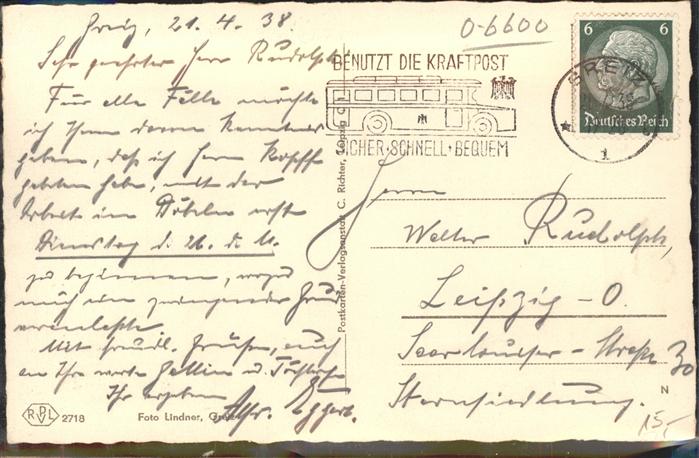 Greiz, 21.4.38.
Sehr geehrter Herr Rudolph!
Für alle Fälle möchte
ich Ihnen davon Kenntnis
geben, daß ich Herrn
gebeten habe, mit der
Arbeit in Döbeln erst
Dienstag d. 26. d. M.
zu beginnen, wozu
mich ein zwingender Grund
veranlaßte.
Mit freundl. Grüßen, auch
an Ihre werte Gattin u.
Ihr ergebener
Alfr. Eggert.
0-6600
BENUTZT DIE KRAFTPOST
SICHER·SCHNELL·BEQUEM
GREIZ
1
6 6
Deutsches Reich
Herrn
Walter Rudolph,
Leipzig-O.
Saarlouiser-Straße 30
Sternsiedlung.
N
15,-
Postkarten-Verlagsanstalt C. Richter, Leipzig C 1
RVPL 2718
Foto Lindner, Greiz